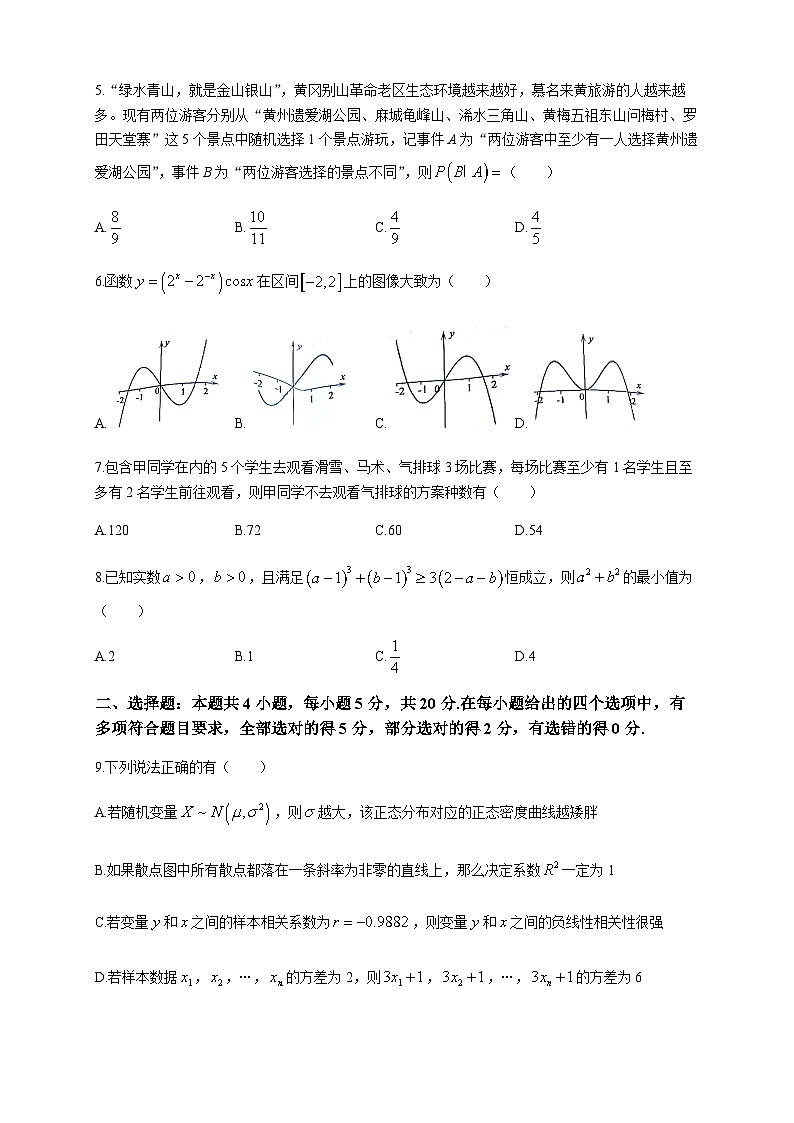 5.“绿水青山，就是金山银山”，黄冈别山革命老区生态环境越来越好，慕名来黄旅游的人越来越
多。现有两位游客分别从“黄州遗爱湖公园、麻城龟峰山、浠水三角山、黄梅五祖东山问梅村、罗
田天堂寨”这 5 个景点中随机选择 1 个景点游玩，记事件 A 为“两位游客中至少有一人选择黄州遗
爱湖公园”，事件 B 为“两位游客选择的景点不同”，则 P(B| A)=（　　）
A. 8/9 B. 10/11 C. 4/9 D. 4/5
6.函数 y=(2^x−2^{−x})cosx 在区间[−2,2]上的图像大致为（　　）
A. y x -2 -1 0 1 2 B. y x -2 -1 1 2 C. y x -2 -1 0 1 2 D. y x -2 -1 0 1 2
7.包含甲同学在内的 5 个学生去观看滑雪、马术、气排球 3 场比赛，每场比赛至少有 1 名学生且至
多有 2 名学生前往观看，则甲同学不去观看气排球的方案种数有（　　）
A.120 B.72 C.60 D.54
8.已知实数 a>0，b>0，且满足 (a−1)³+(b−1)³≥3(2−a−b)恒成立，则 a²+b² 的最小值为
（　　）
A.2 B.1 C. 1/4 D.4
二、选择题：本题共 4 小题，每小题 5 分，共 20 分.在每小题给出的四个选项中，有
多项符合题目要求，全部选对的得 5 分，部分选对的得 2 分，有选错的得 0 分.
9.下列说法正确的有（　　）
A.若随机变量 X~N(μ,σ²)，则 σ 越大，该正态分布对应的正态密度曲线越矮胖
B.如果散点图中所有散点都落在一条斜率为非零的直线上，那么决定系数 R² 一定为 1
C.若变量 y 和 x 之间的样本相关系数为 r=−0.9882，则变量 y 和 x 之间的负线性相关性很强
D.若样本数据 x₁，x₂，…，xₙ 的方差为 2，则 3x₁+1，3x₂+1，…，3xₙ+1 的方差为 6